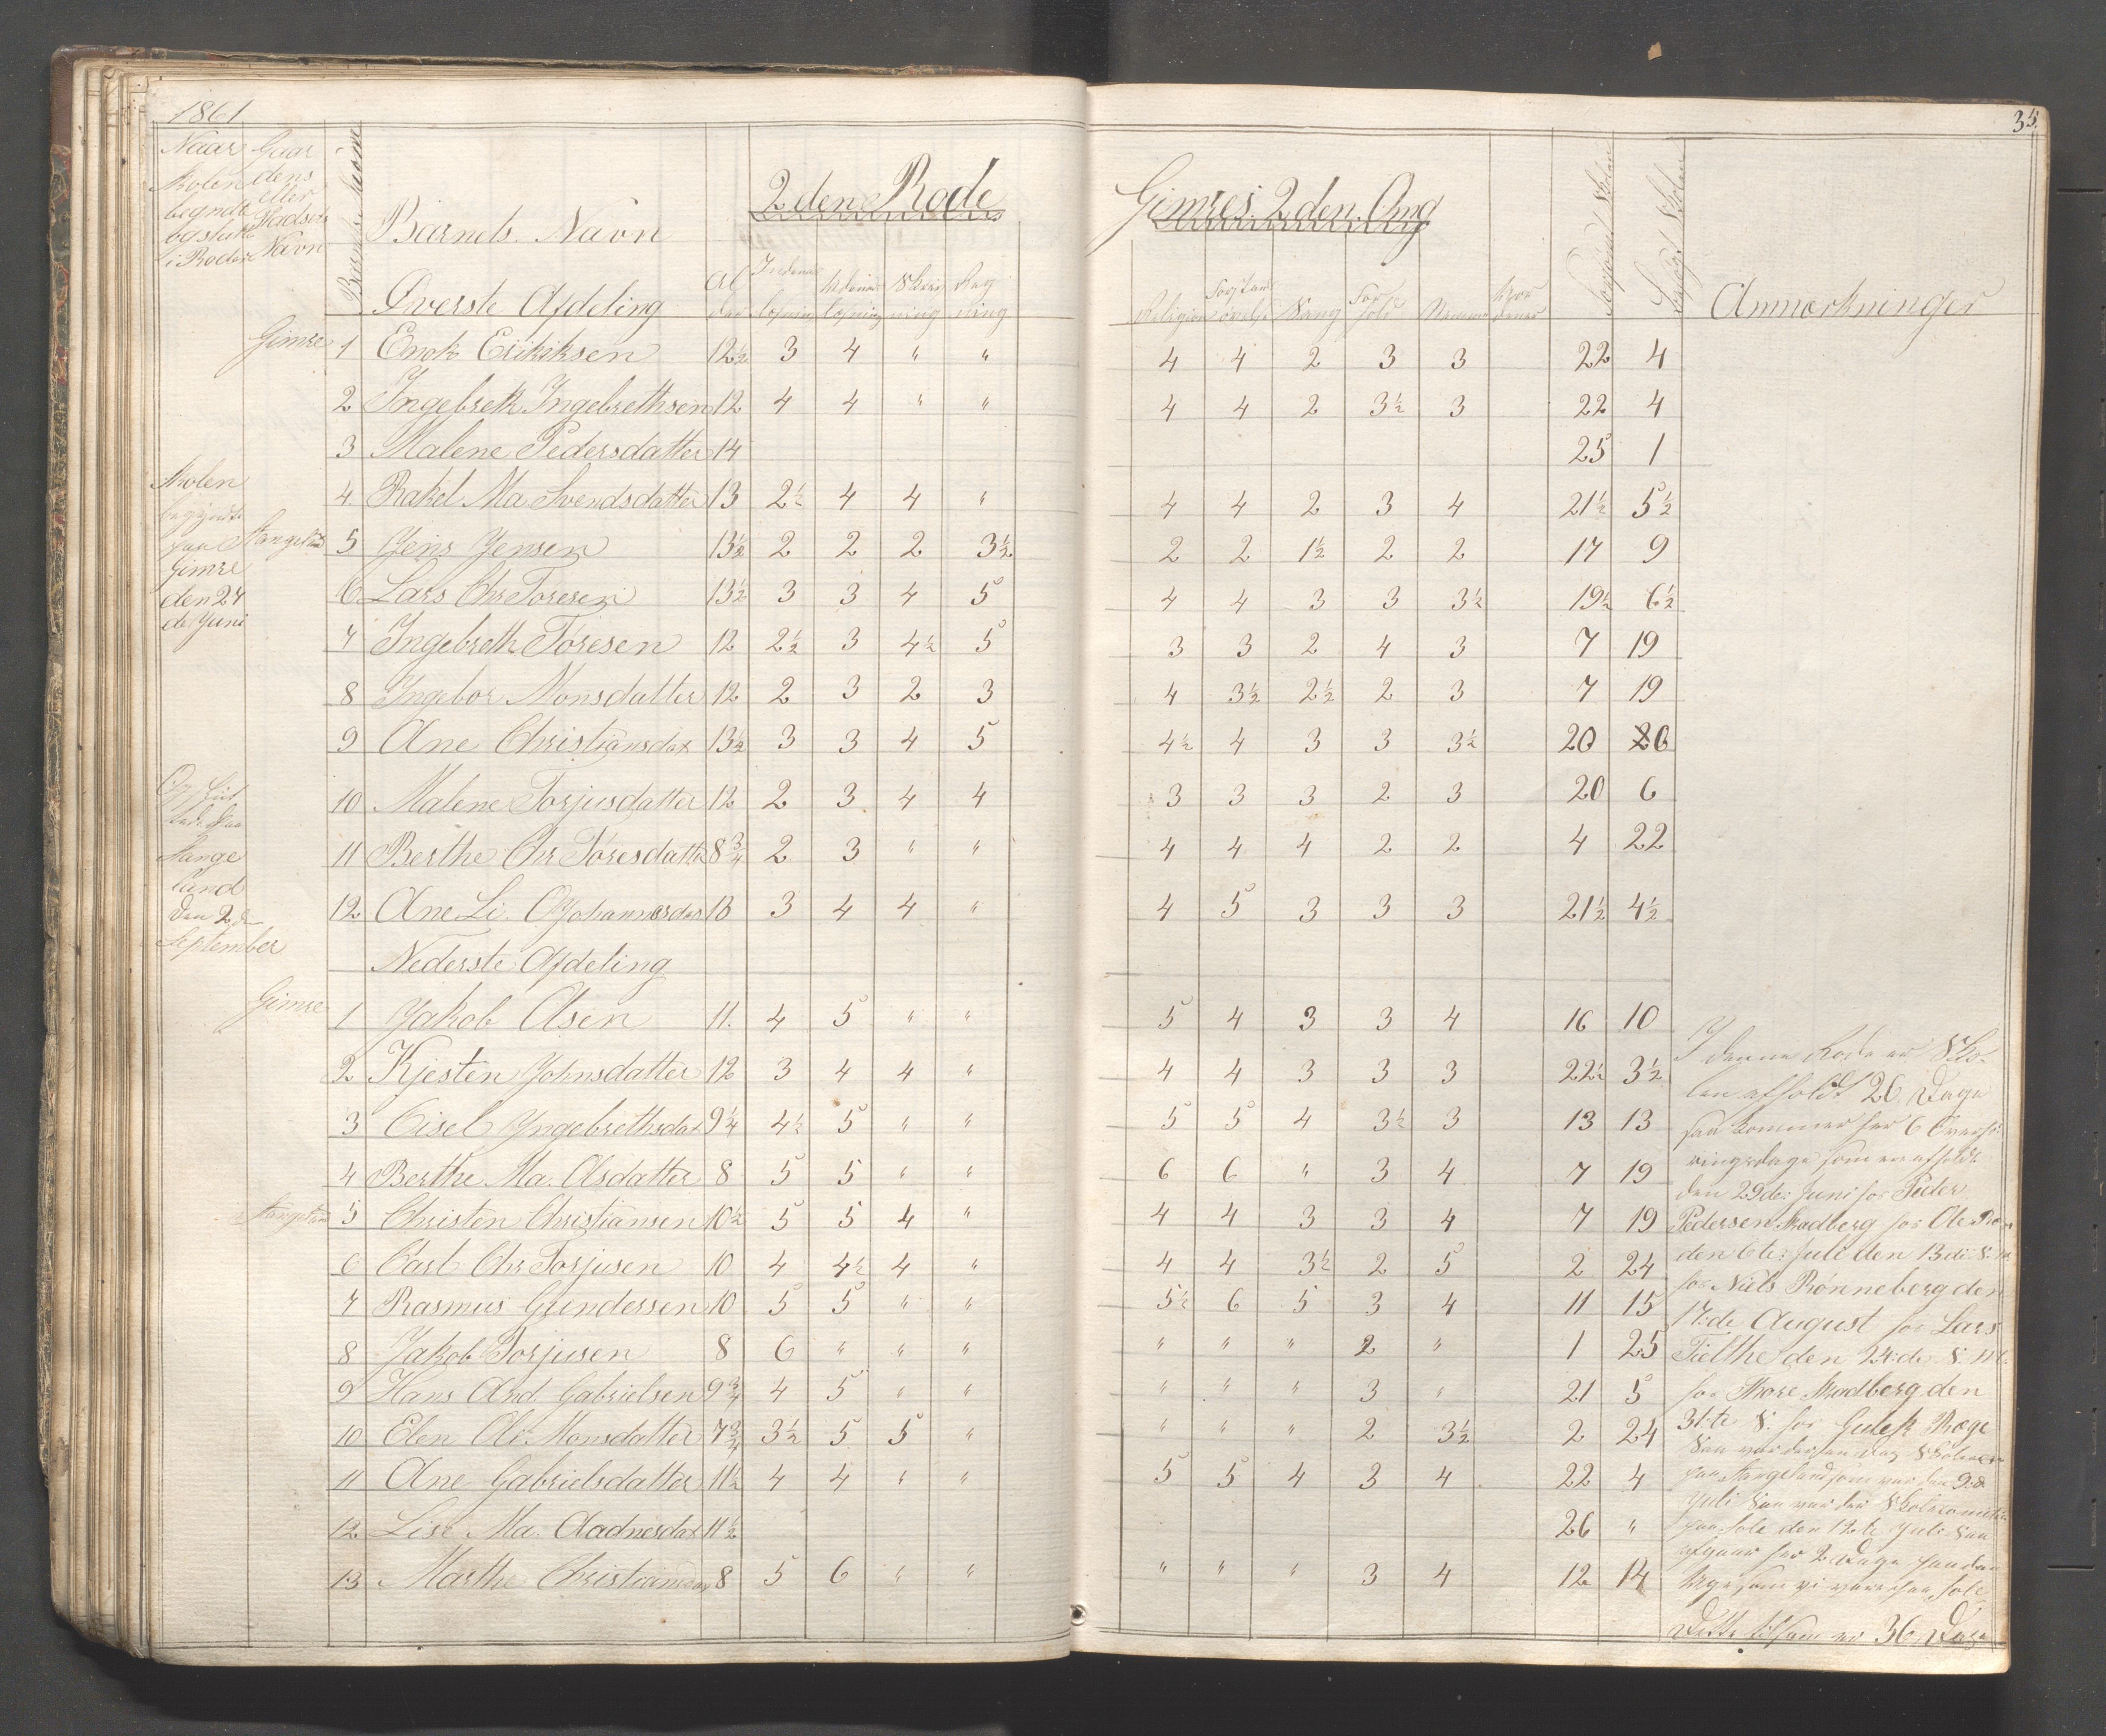 1861
35.
Naar Skolen begyndte og slutt i Roden
Gaardens eller Pladsets Navn
Barnets Navn
Øverste Afdeling
Al der
2den Rode
Gimres 2den Omg
Indenad læsning
Udenad læsning
Skriv ning
Reg ning
Religion
Sang
For hold
Anmærkninger
Gimre 1 Enok Eriksen 12½ 3 4 " " 4 4 2 3 3 22 4
2 Ingebreth Ingebrethsen 12 4 4 " " 4 4 2 3½ 3 22 4
3 Malene Pedersdatter 14 25 1
4 Rakel Ma. Svendsdatter 13 2½ 4 4 " 4 4 2 3 4 21½ 5½
Stangeland 5 Jens Jensen 13½ 2 2 2 3½ 2 2 1½ 2 2 17 9
6 Lars Chr Toresen 13½ 3 3 4 5 4 4 3 3 3½ 19½ 6½
7 Ingebreth Tøresen 12 2½ 3 4½ 5 3 3 2 4 3 7 19
8 Ingebor Monsdatter 12 2 3 2 3 4 3½ 2½ 2 3 7 19
9 Ane Christiansdat 13¼ 3 3 4 5 4½ 4 3 3 3½ 20 6
10 Malene Torjusdatter 12 2 3 4 4 3 3 3 2 3 20 6
11 Berthe Chr Toresdatter 8¾ 2 3 " " 4 4 4 2 2 4 22
12 Ane Li. Johannesdat 13 3 4 4 " 4 5 3 3 3 21½ 4½
Skolen begyndte paa Gimre den 24 de Juni
Stangeland den 2den September
Nederste Afdeling
Gimre 1 Jakob Olsen 11. 4 5 " " 5 4 3 3 4 16 10
2 Kjesten Johnsdatter 12 3 4 4 " 4 4 3 3 3 22½ 3½
3 Cisel Yngebrethsdat 9¼ 4½ 5 " " 5 5 4 3½ 3 13 13
4 Berthe Ma. Olsdatter 8 5 5 " " 6 6 " 3 4 7 19
Stangeland 5 Christen Christiansen 10½ 5 5 4 " 4 4 3 3 4 7 19
6 Carl Chr Torjusen 10 4 4½ 4 " 4 4 3½ 2 5 2 24
7 Rasmus Gundersen 10 5 5 " " 5½ 6 5 3 4 11 15
8 Jakob Torjusen 8 6 " " " " " " 2 " 1 25
9 Hans And. Gabrielsen 9¾ 4 5 " " " " " 3 " 21 5
10 Elen Ol. Monsdatter 7¾ 3½ 5 5 " " " " 2 3½ 2 24
11 Ane Gabrielsdatter 11½ 4 4 " " 5 5 4 3 4 22 4
12 Lise Ma. Aadnesdat 11½ 26 "
13 Marthe Christiansdat 8 5 6 " " " " " 3 4 12 14
I denne Rode er Sko-
len afholdt 26 Dage
saa kommer her 6 Overhø-
ringsdage som er afholdt
den 29de Juni for Peder
Pedersen Stadberg for Ole
den 6te Juli den 13de S. M.
for Niels Rønneberg den
17de August for Lars
Tielthe den 24:de S. M.
for Thore Stadberg den
31:te S. for Gulek Ræge
paa Stangeland som var den 9de
Juli Saa var der Skolecomite
paa Sole den 12te Juli Saa
afgaar her 2 Dage
som vi vare paa Sole
Dette tilsam er 36 Dage